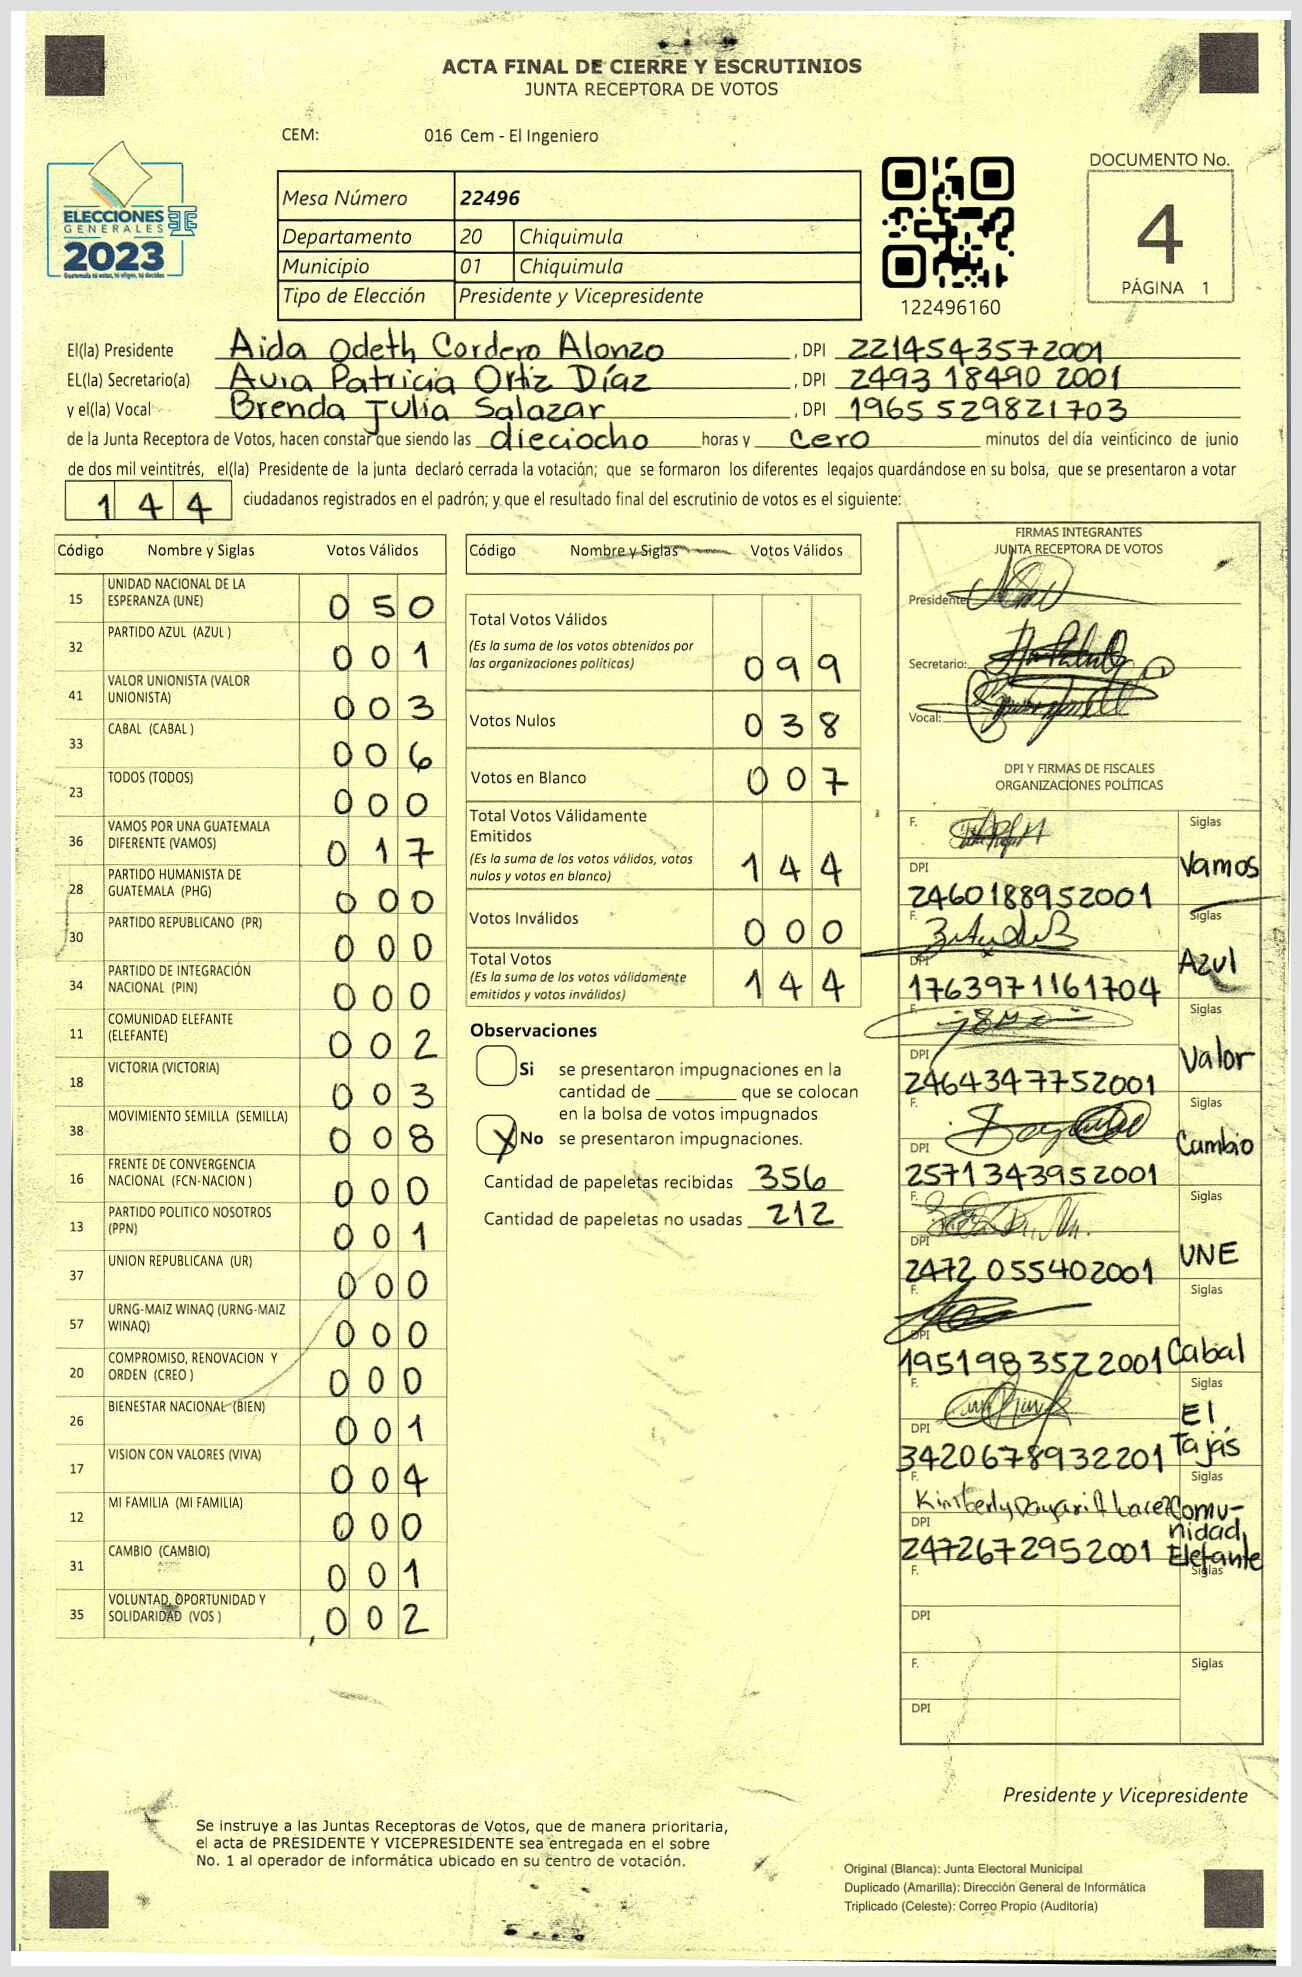 ACTA FINAL DE CIERRE Y ESCRUTINIOS
JUNTA RECEPTORA DE VOTOS
CEM: 016 Cem - El Ingeniero
ELECCIONES
GENERALES
2023
Guatemala tú votas, tú eliges, tú decides
Mesa Número 22496
Departamento 20 Chiquimula
Municipio 01 Chiquimula
Tipo de Elección Presidente y Vicepresidente
122496160
DOCUMENTO No.
4
PÁGINA 1
El(la) Presidente Aida Odeth Cordero Alonzo , DPI 2214543572001
EL(la) Secretario(a) Aura Patricia Ortiz Díaz , DPI 2493 18490 2001
y el(la) Vocal Brenda Julia Salazar , DPI 1965 529821703
de la Junta Receptora de Votos, hacen constar que siendo las dieciocho horas y cero minutos del día veinticinco de junio
de dos mil veintitrés, el(la) Presidente de la junta declaró cerrada la votación; que se formaron los diferentes legajos guardándose en su bolsa, que se presentaron a votar
144 ciudadanos registrados en el padrón; y que el resultado final del escrutinio de votos es el siguiente:
Código Nombre y Siglas Votos Válidos
15 UNIDAD NACIONAL DE LA ESPERANZA (UNE) 050
32 PARTIDO AZUL (AZUL ) 001
41 VALOR UNIONISTA (VALOR UNIONISTA) 003
33 CABAL (CABAL ) 006
23 TODOS (TODOS) 000
36 VAMOS POR UNA GUATEMALA DIFERENTE (VAMOS) 017
28 PARTIDO HUMANISTA DE GUATEMALA (PHG) 000
30 PARTIDO REPUBLICANO (PR) 000
34 PARTIDO DE INTEGRACIÓN NACIONAL (PIN) 000
11 COMUNIDAD ELEFANTE (ELEFANTE) 002
18 VICTORIA (VICTORIA) 003
38 MOVIMIENTO SEMILLA (SEMILLA) 008
16 FRENTE DE CONVERGENCIA NACIONAL (FCN-NACION ) 000
13 PARTIDO POLITICO NOSOTROS (PPN) 001
37 UNION REPUBLICANA (UR) 000
57 URNG-MAIZ WINAQ (URNG-MAIZ WINAQ) 000
20 COMPROMISO, RENOVACION Y ORDEN (CREO ) 000
26 BIENESTAR NACIONAL (BIEN) 001
17 VISION CON VALORES (VIVA) 004
12 MI FAMILIA (MI FAMILIA) 000
31 CAMBIO (CAMBIO) 001
35 VOLUNTAD, OPORTUNIDAD Y SOLIDARIDAD (VOS ) 002
Código Nombre y Siglas Votos Válidos
Total Votos Válidos
(Es la suma de los votos obtenidos por
las organizaciones políticas) 099
Votos Nulos 038
Votos en Blanco 007
Total Votos Válidamente
Emitidos
(Es la suma de los votos válidos, votos
nulos y votos en blanco) 144
Votos Inválidos 000
Total Votos
(Es la suma de los votos válidamente
emitidos y votos inválidos) 144
Observaciones
Si se presentaron impugnaciones en la
cantidad de ________ que se colocan
en la bolsa de votos impugnados
X No se presentaron impugnaciones.
Cantidad de papeletas recibidas 356
Cantidad de papeletas no usadas 212
FIRMAS INTEGRANTES
JUNTA RECEPTORA DE VOTOS
Presidente:
Secretario:
Vocal:
DPI Y FIRMAS DE FISCALES
ORGANIZACIONES POLÍTICAS
F. Siglas
DPI Vamos
2460188952001
F. Siglas
DPI Azul
1763971161704
F. Siglas
DPI Valor
2464347752001
F. Siglas
DPI Cambio
2571343952001
F. Siglas
DPI UNE
2472 055402001
F. Siglas
DPI Cabal
1951983522001
F. Siglas
DPI El Tajás
3420678932201
F. Kimberly Siglas
DPI Comunidad, Elefante
2472672952001
F. Siglas
DPI
F. Siglas
DPI
Presidente y Vicepresidente
Se instruye a las Juntas Receptoras de Votos, que de manera prioritaria,
el acta de PRESIDENTE Y VICEPRESIDENTE sea entregada en el sobre
No. 1 al operador de informática ubicado en su centro de votación.
Original (Blanca): Junta Electoral Municipal
Duplicado (Amarilla): Dirección General de Informática
Triplicado (Celeste): Correo Propio (Auditoría)